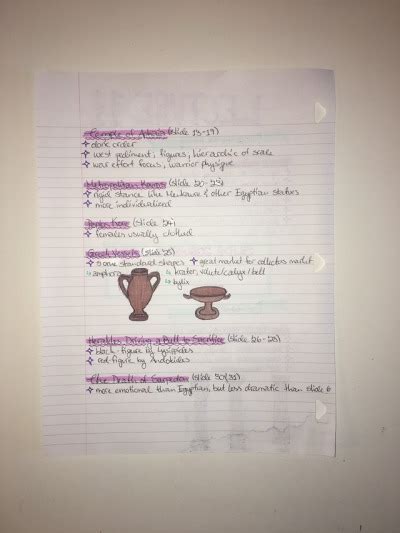 Temple of Artemis (slide 13-19)
doric order
west pediment, figures, hierarchic of scale
war effort focus, warrior physique
Metropolitan Kouros (slide 20-23)
rigid stance like Menkaure & other Egyptian statues
more individualized
Peplos Kore (slide 24)
females usually clothed
Greek Vessels (slide 25)
some standard shapes great market for collectors market
amphora krater, volute/calyx/bell
kylix
Herakles Driving a Bull to Sacrifice (slide 26-28)
black-figure by Lysippides
red-figure by Andokides
The Death of Sarpedon (slide 30/31)
more emotional than Egyptian, but less dramatic than slide 6